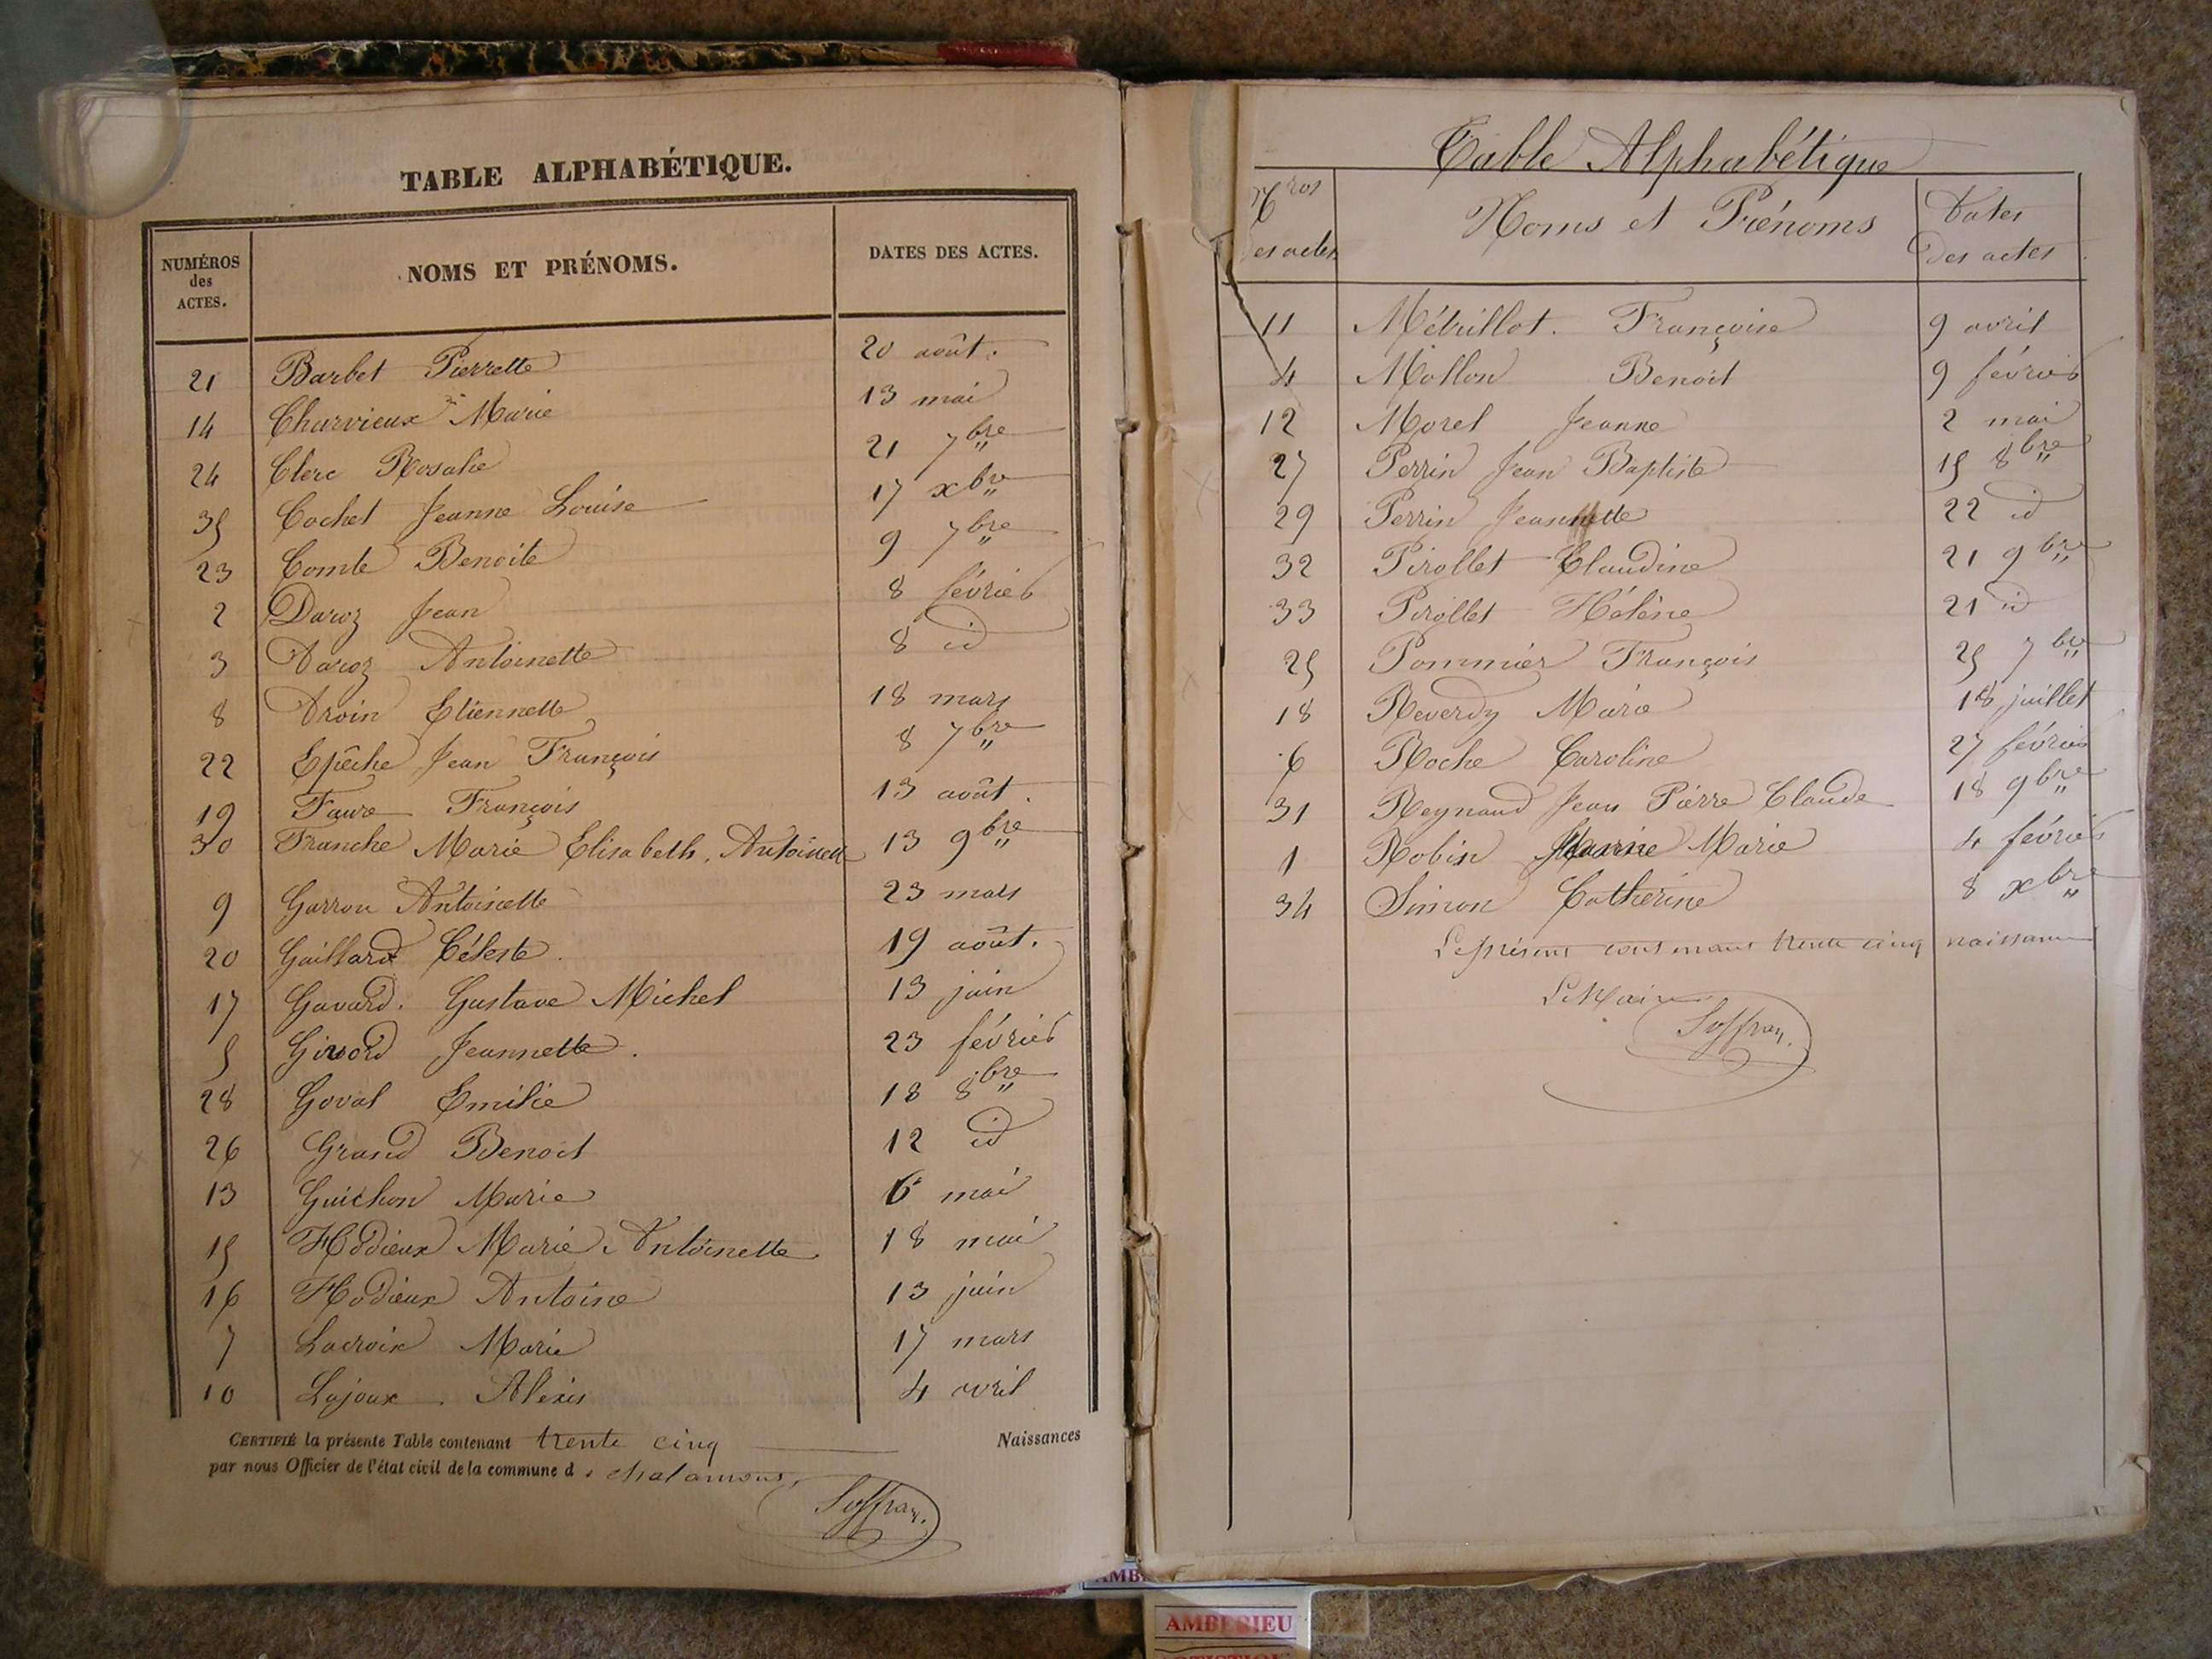 TABLE ALPHABÉTIQUE.
NUMÉROS des ACTES. NOMS ET PRÉNOMS. DATES DES ACTES.
21 Barbet Pierrette 20 août.
14 Charvieux Marie 13 mai
24 Clerc Rosalie 21 7bre
35 Cochet Jeanne Louise 17 xbre
23 Comte Benoite 9 7bre
2 Daroz Jean 8 février
3 Daroz Antoinette 8 id
8 Droin Etiennette 18 mars
22 Epêche Jean François 8 7bre
19 Faure François 13 août.
30 Franche Marie Elisabeth, Antoinette 13 9bre
9 Garron Antoinette 23 mars
20 Gaillard Céleste. 19 août.
17 Gavard. Gustave Michel 13 juin
5 Girord Jeannette. 23 février
28 Goval Emilie 18 8bre
26 Grand Benoit 12 id
13 Guichon Marie 6 mai
15 Hodieux Marie Antoinette 18 mai
16 Hodieux Antoine 13 juin
7 Lacroix Marie 17 mars
10 Lajoux. Alexis 4 avril
CERTIFIÉ la présente Table contenant trente cinq Naissances
par nous Officier de l'état civil de la commune d
Table Alphabétique
Nros Des actes Noms et Prénoms Dates Des actes.
11 Métrillot. Françoise 9 avril
4 Mollon Benoit 9 février
12 Morel Jeanne 2 mai
27 Perrin Jean Baptiste 15 8bre
29 Perrin Jeannette 22 id
32 Pirollet Claudine 21 9bre
33 Pirollet Hélène 21 id
25 Pommier François 25 7bre
18 Reverdy Marie 18 juillet
6 Roche Caroline 27 février
31 Reynaud Jean Pierre Claude 18 9bre
1 Robin Jeanne Marie 4 février
34 Simon Catherine 8 xbre
trente cinq naissances
Le Maire
AMBERIEU